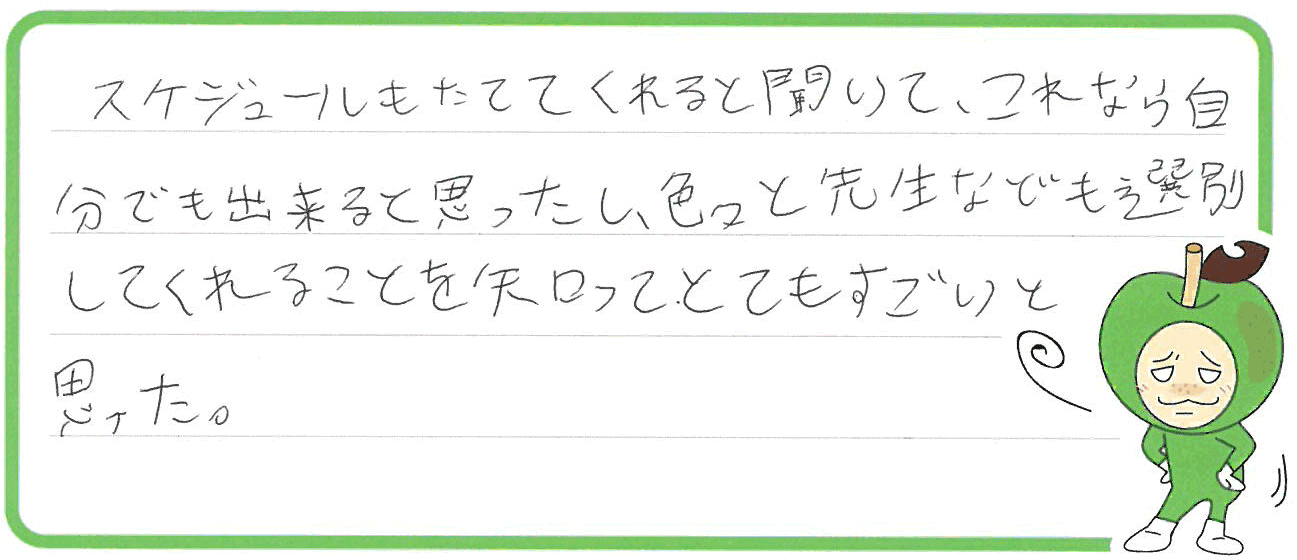 スケジュールもたててくれると聞いて、これなら自
分でも出来ると思ったし、色々と先生なども選別
してくれることを知ってとてもすごいと
思った。